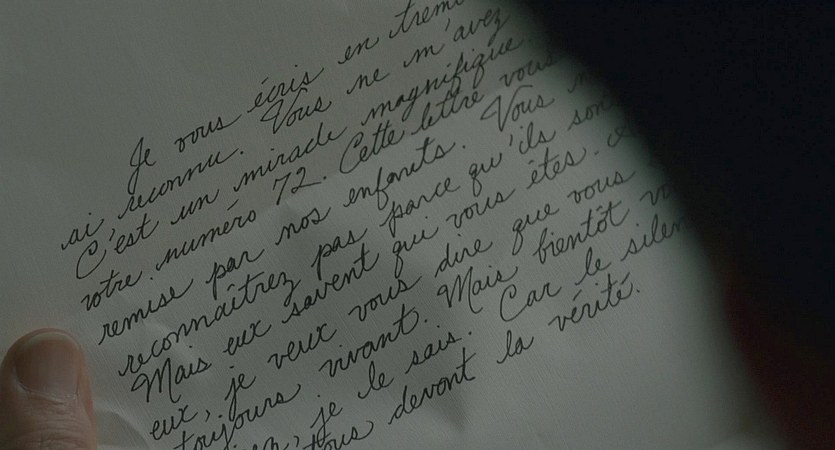 Je vous écris en trem
ai reconnu. Vous ne m'avez
C'est un miracle magnifique.
votre numéro 72. Cette lettre vous
remise par nos enfants. Vous
reconnaîtrez pas parce qu'ils sont
Mais eux savent qui vous êtes.
eux, je veux vous dire que vous
toujours vivant. Mais bientôt
je le sais. Car le silen
devont la vérité.